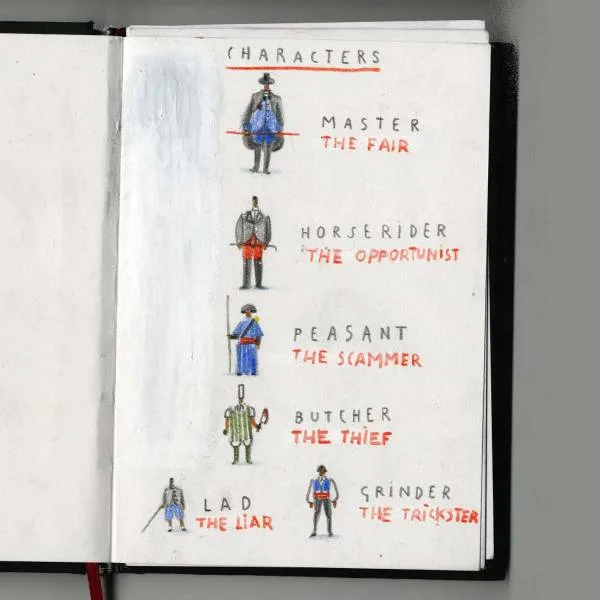 CHARACTERS
MASTER
THE FAIR
HORSERIDER
THE OPPORTUNIST
PEASANT
THE SCAMMER
BUTCHER
THE THIEF
LAD
THE LIAR
GRINDER
THE TRICKSTER